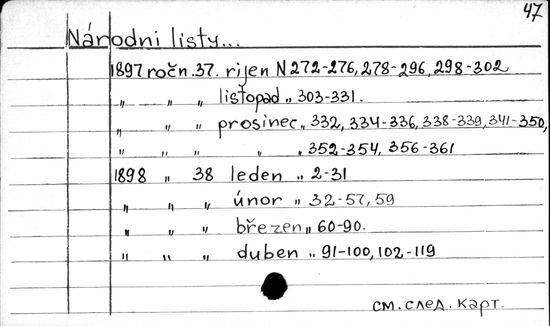 47
Národni listy...
1897 ročn. 37. rijen N 272-276, 278-296, 298-302
„ „ „ listopad „ 303-331.
„ „ „ prosinec „ 332, 334-336, 338-339, 341-350,
„ „ „ „ „ 352-354, 356-361
1898 „ 38 leden „ 2-31
„ „ „ únor „ 32-57, 59
„ „ „ březen „ 60-90.
„ „ „ duben „ 91-100, 102-119
см. след. карт.